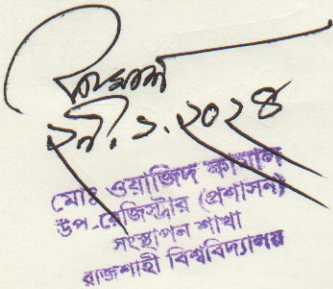 ২৭.১.২০২৪
মোঃ ওয়াজিদ
উপ-রেজিস্ট্রার (প্রশাসন)
সংস্থাপন শাখা
রাজশাহী বিশ্ববিদ্যালয়